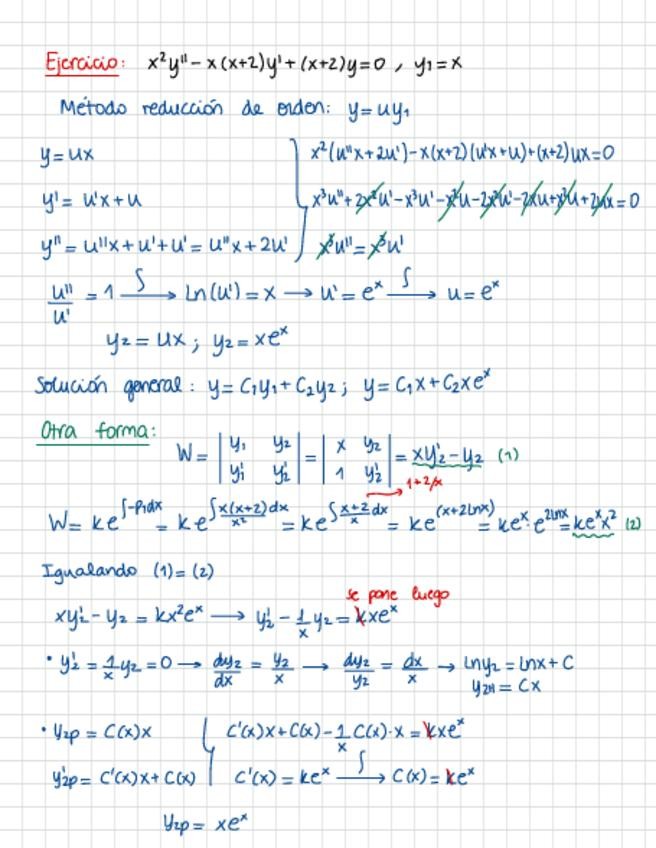 Ejercicio: x²y'' - x(x+2)y' + (x+2)y = 0 , y₁ = x
Método reducción de orden: y = uy₁
y = ux
x²(u''x+2u') - x(x+2)(u'x+u) + (x+2)ux = 0
y' = u'x + u
x³u'' + 2x²u' - x³u' - x²u - 2x²u' - 2xu + x²u + 2ux = 0
y'' = u''x + u' + u' = u''x + 2u'
x³u'' = x³u'
u''/u' = 1 ∫→ ln(u') = x → u' = eˣ ∫→ u = eˣ
y₂ = ux ; y₂ = xeˣ
Solución general: y = C₁y₁ + C₂y₂ ; y = C₁x + C₂xeˣ
Otra forma:
W = |y₁ y₂; y₁' y₂'| = |x y₂; 1 y₂'| = xy₂' - y₂ (1)
1+2/x
W = ke^∫-P₁dx = ke^∫x(x+2)/x² dx = ke^∫(x+2)/x dx = ke^(x+2lnx) = keˣ·e^2lnx = keˣx² (2)
Igualando (1) = (2)
se pone luego
xy₂' - y₂ = kx²eˣ → y₂' - 1/x y₂ = kxeˣ
• y₂' = 1/x y₂ = 0 → dy₂/dx = y₂/x → dy₂/y₂ = dx/x → lny₂ = lnx + C
y₂H = Cx
• y₂p = C(x)x
C'(x)x + C(x) - 1/x C(x)·x = kxeˣ
y₂'p = C'(x)x + C(x)
C'(x) = keˣ ∫→ C(x) = keˣ
y₂p = xeˣ